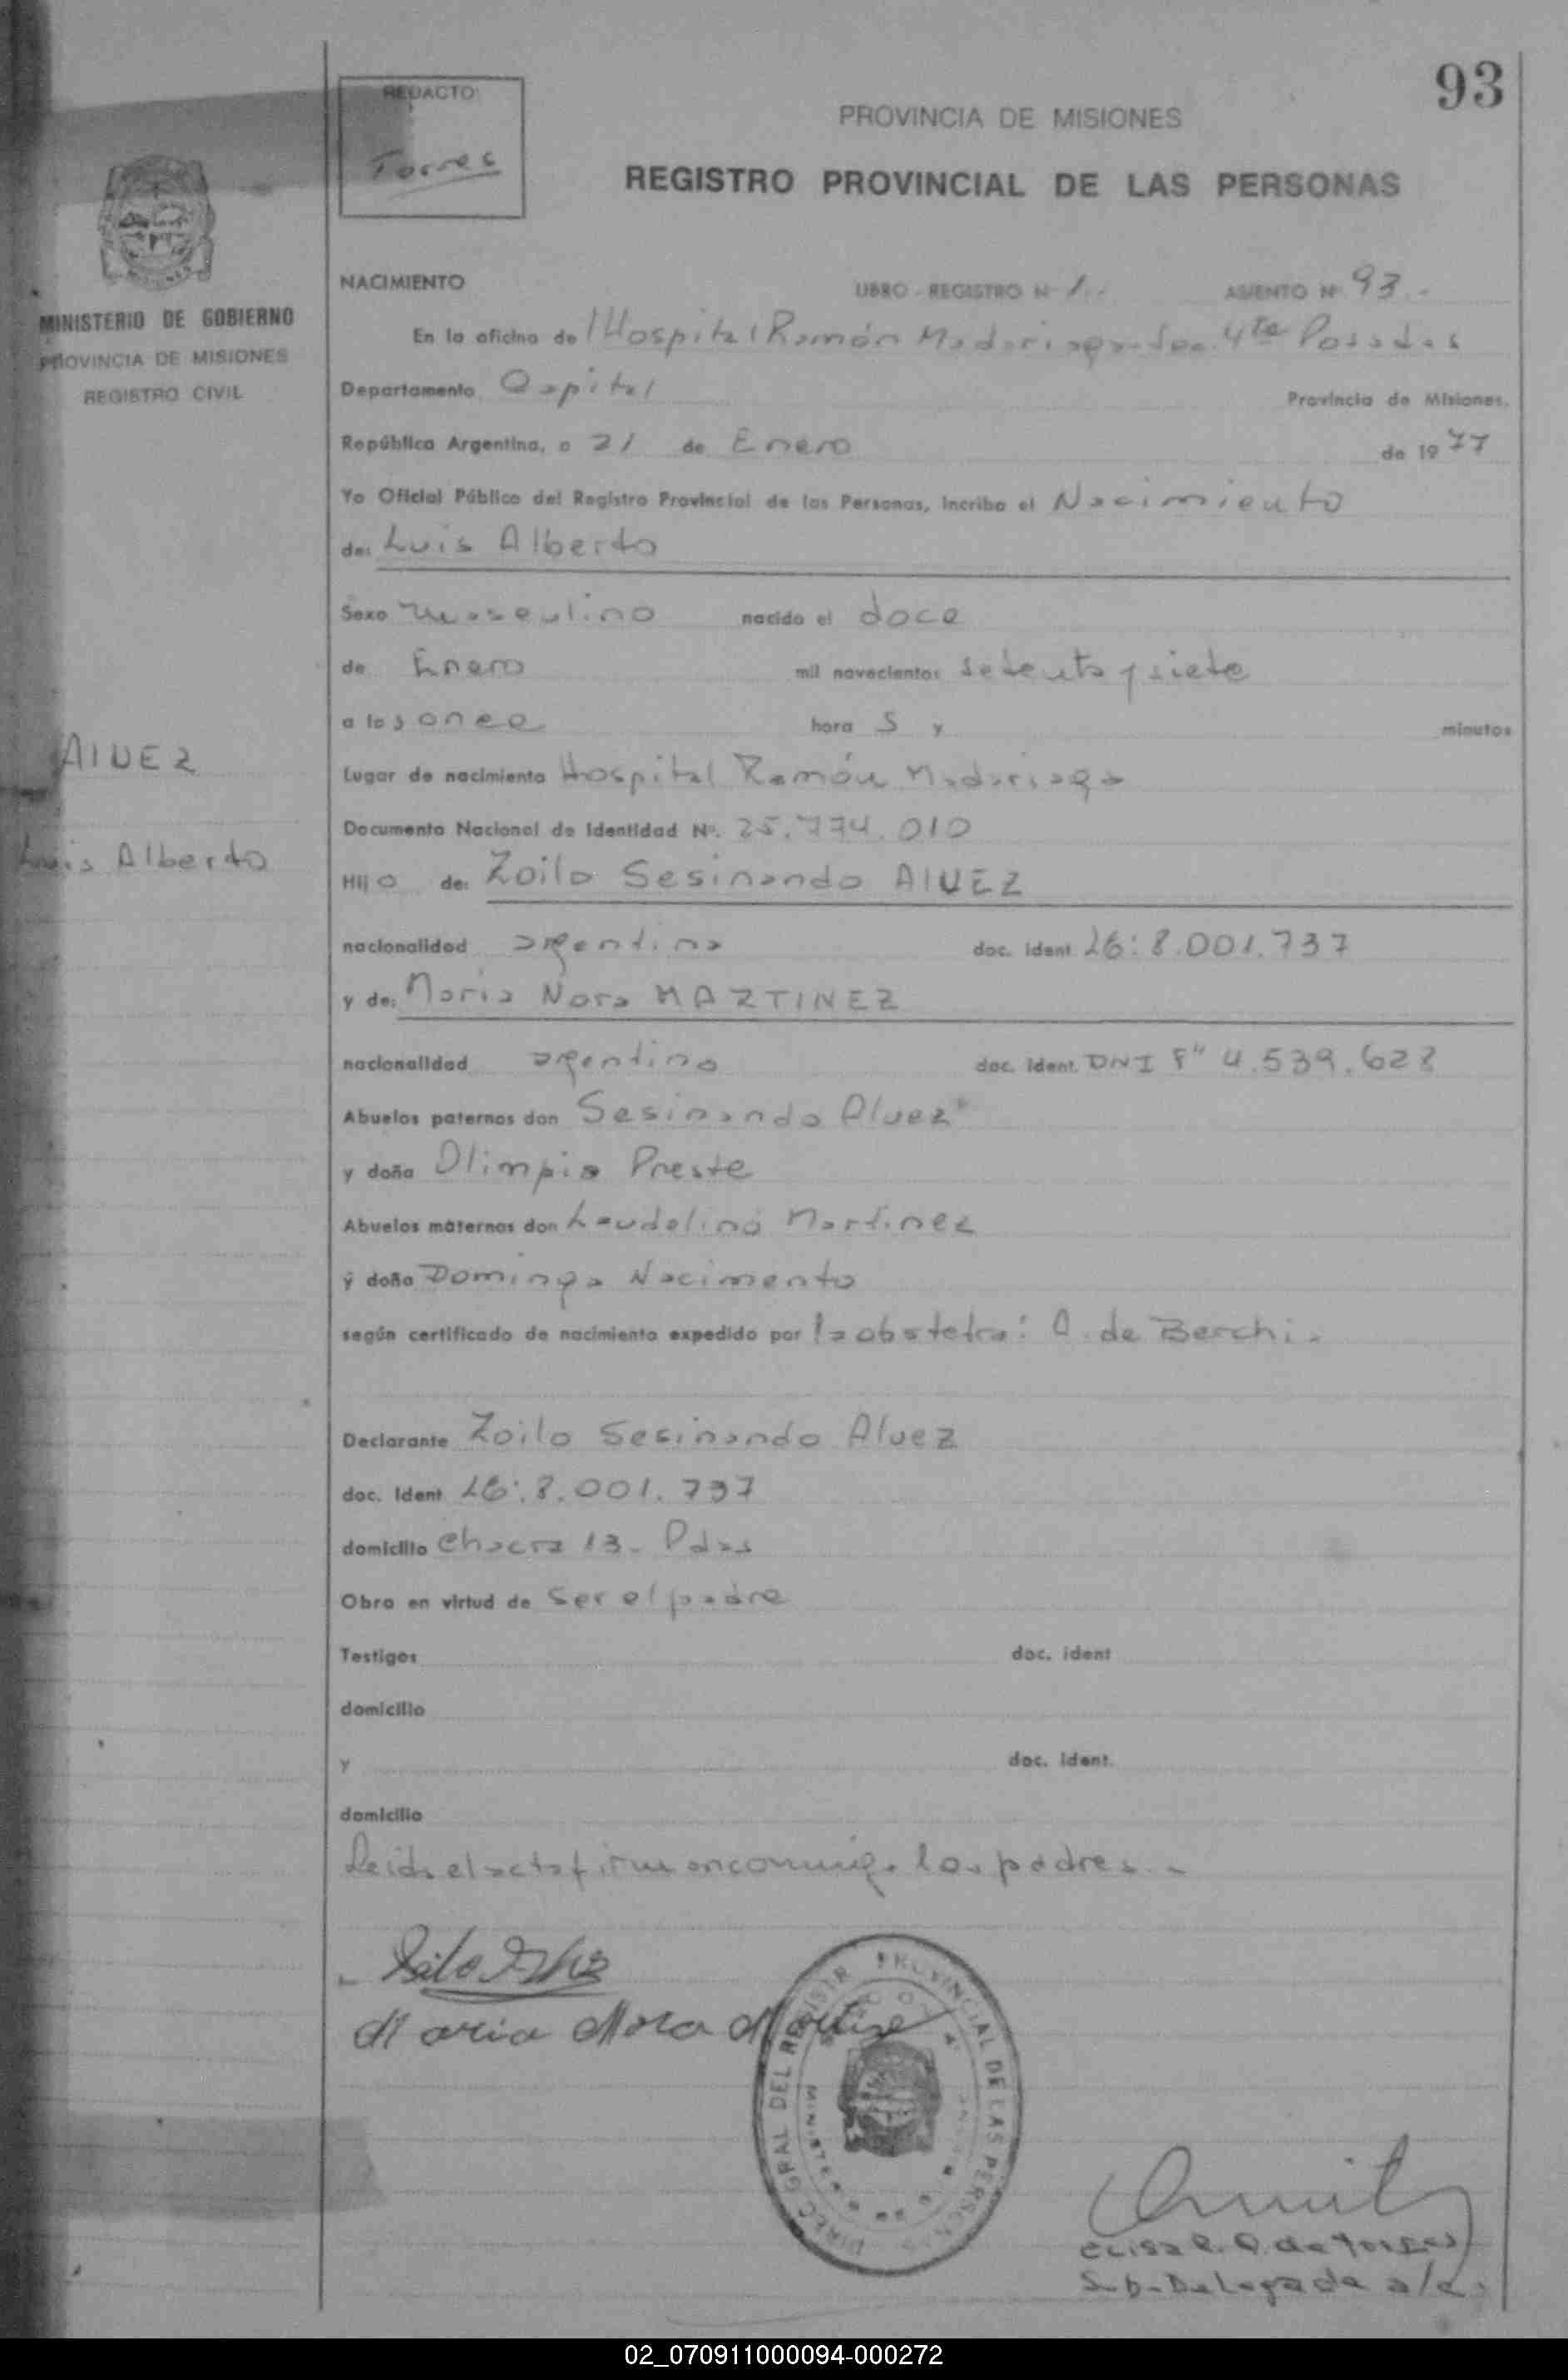 93
REDACTO
Torres
PROVINCIA DE MISIONES
REGISTRO PROVINCIAL DE LAS PERSONAS
MINISTERIO DE GOBIERNO
PROVINCIA DE MISIONES
REGISTRO CIVIL
NACIMIENTO LIBRO - REGISTRO Nº 1.- ASIENTO Nº 93.-
En la oficina de l Hospital Ramón Madariaga - Secc. 4ta Posadas
Departamento Capital Provincia de Misiones.
República Argentina, a 21 de Enero de 1977
Yo Oficial Público del Registro Provincial de las Personas, Incribo el Nacimiento
de: Luis Alberto
Sexo masculino nacido el doce
de Enero mil novecientos setenta y siete
a las once hora s y minutos
ALVEZ
Lugar de nacimiento Hospital Ramón Madariaga
Documento Nacional de Identidad Nº. 25.774.010
Luis Alberto
Hijo de: Zoilo Sesinando ALVEZ
nacionalidad argentina doc. Ident. LE: 8.001.737
y de: Maria Nora MARTINEZ
nacionalidad argentina doc. Ident. DNI F" 4.539.628
Abuelos paternos don Sesinando Alvez
y doña Olimpia Preste
Abuelos maternos don Laudelino Martinez
y doña Dominga Nacimento
según certificado de nacimiento expedido por la obstetra: A. de Berchi.
Declarante Zoilo Sesinando Alvez
doc. Ident LE: 8.001.737
domicilio Chacra 13 - Pdas
Obra en virtud de ser el padre
Testigos doc. ident
domicilio
y doc. Ident.
domicilio
Leida el acta firman conmigo los padres.-
Maria Nora Martinez
DIREC. GRAL. DEL REGISTR. PROVINCIAL DE LAS PERSONAS
Elisa R. A. de Torres
Sub-Delegada a/c.
02_070911000094-000272